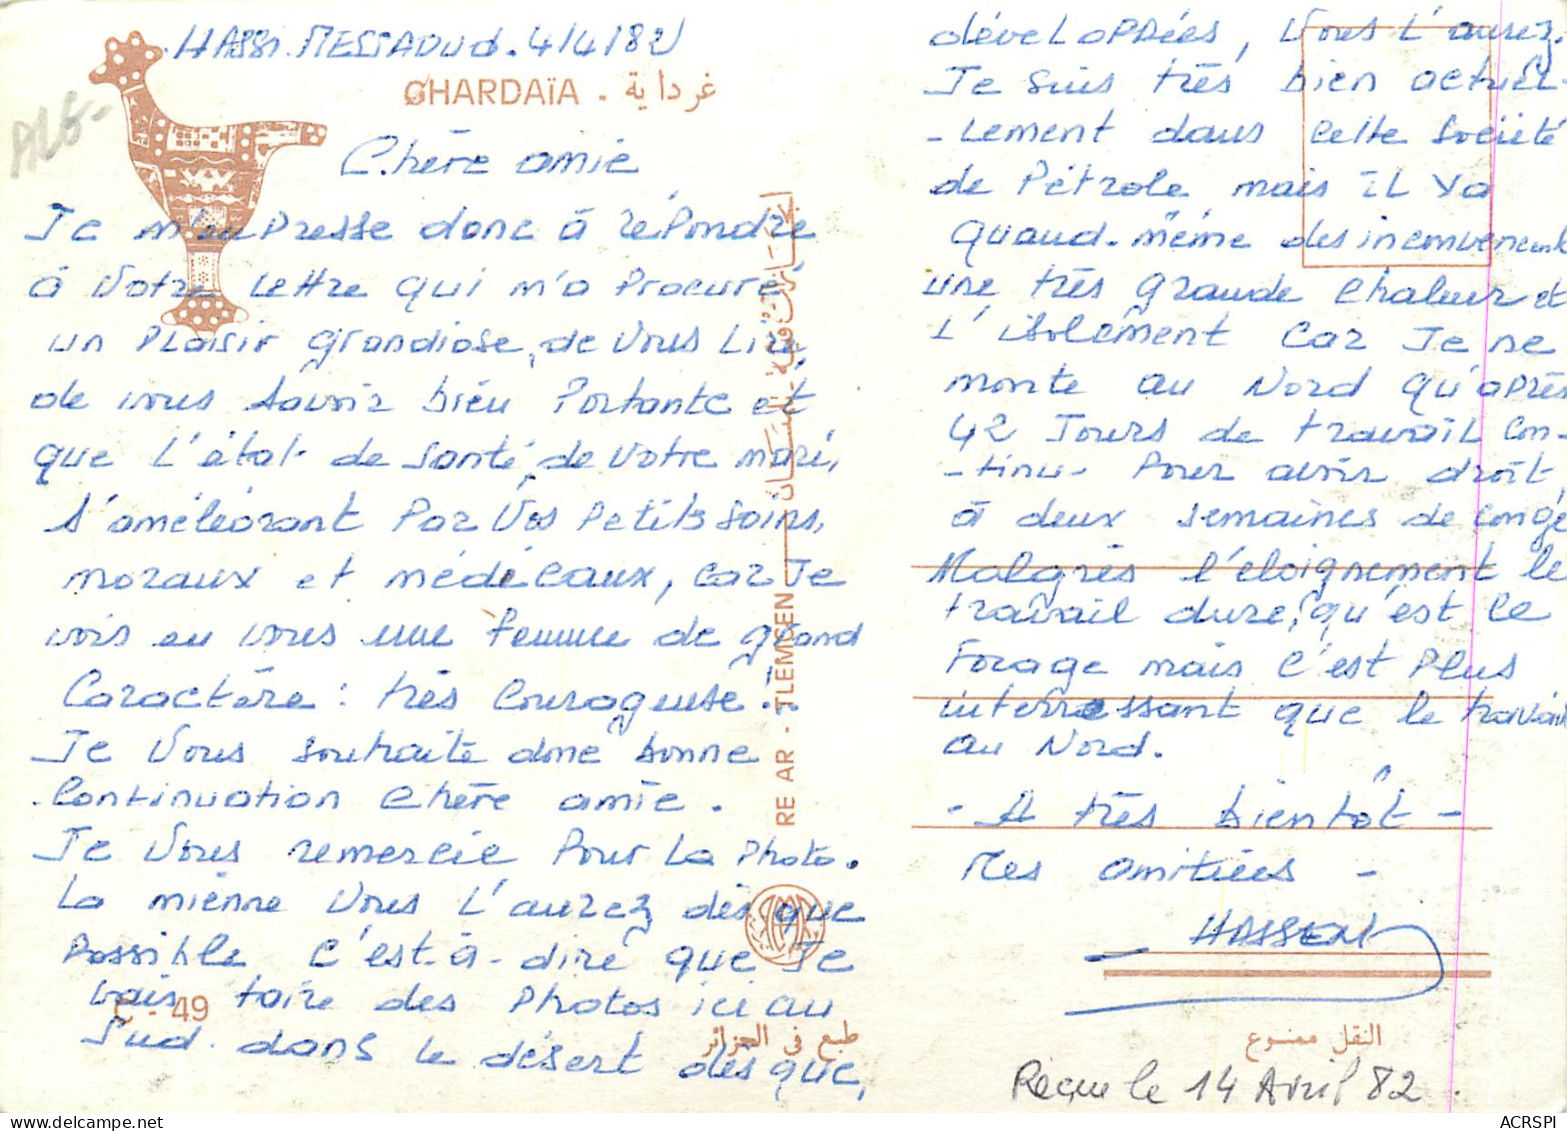 HASSI.MESSAOUD. 4/4/82
GHARDAÏA . غرداية
ALG-
Chère amie
Je m'empresse donc à répondre
à votre lettre qui m'a procuré
un plaisir grandiose, de vous lire
de vous savoir bien portante et
que l'état de santé de votre mari,
s'améléorant par vos petits soins,
moraux et médicaux, car je
vois en vous une femme de grand
Caractère : très courageuse..
Je vous souhaite donc bonne
Continuation chère amie.
Je vous remercie pour la photo.
La mienne vous l'aurez dès que
possible c'est-à-dire que je
vais faire des photos ici au
Sud. dans le désert dès que,
49
طبع في الجزائر
RE AR - TLEMCEN
développées, vous l'aurez.
Je suis très bien actuel-
-lement dans cette Société
de Pétrole mais il ya
quand-même des inconvenients
une très grande chaleur et
L'isolement car je ne
monte au Nord qu'après
42 jours de travail con-
-tinu- pour avoir droit
à deux semaines de congé
Malgrès l'eloignement le
travail dure, qu'est le
Forage mais c'est plus
interressant que le travail
au Nord.
- A très bientôt -
Mes amitiées -
HASSEN
النقل ممنوع
Reçue le 14 Avril 82.
ACRSPI